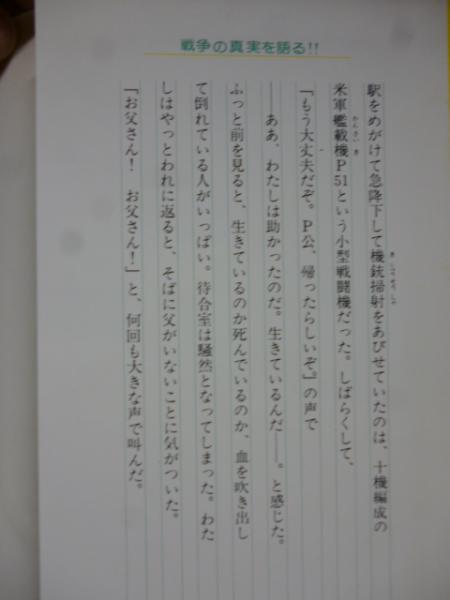 戦争の真実を語る!!
駅をめがけて急降下して機銃掃射をあびせていたのは、十機編成の
米軍艦載機P51という小型戦闘機だった。しばらくして、
「もう大丈夫だぞ。P公、帰ったらしいぞ」の声で
――ああ、わたしは助かったのだ。生きているんだ――。と感じた。
ふっと前を見ると、生きているのか死んでいるのか、血を吹き出し
て倒れている人がいっぱい。待合室は騒然となってしまった。わた
しはやっとわれに返ると、そばに父がいないことに気がついた。
「お父さん！　お父さん！」と、何回も大きな声で叫んだ。